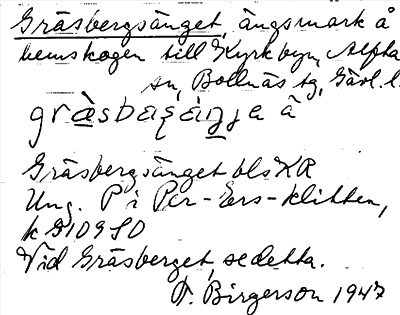 Gräsbergsänget, ängsmark å
hemskogen till Kyrkbyn, Alfta
sn, Bollnäs tg, Gävl. l.
Gräsbergsänget bls KR
Ung. P i Per-Ers-klitten,
k G109 SO
Vid Gräsberget, se detta.
F. Birgerson 1947